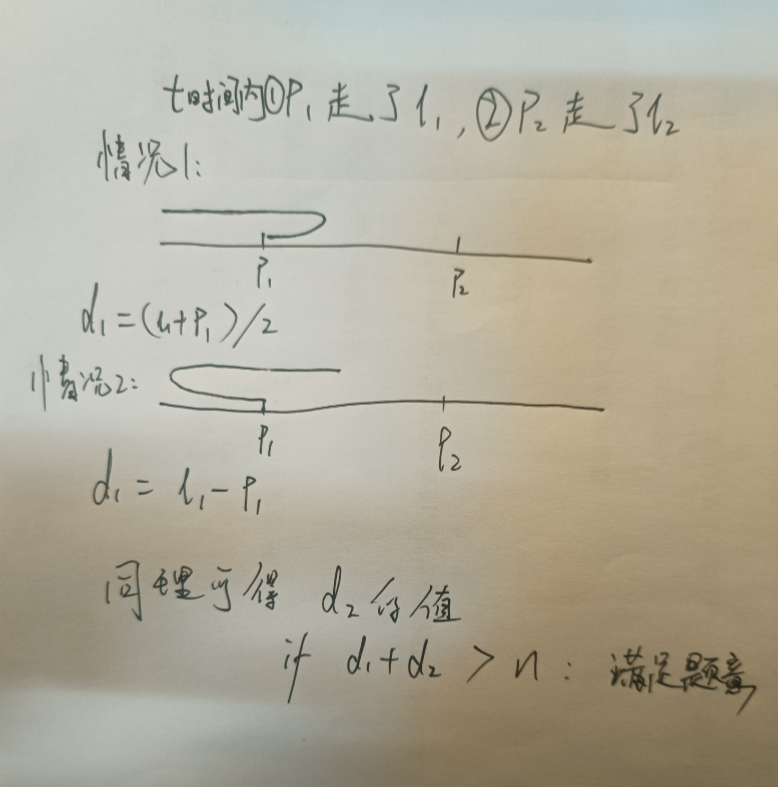 t时间内①P₁走了l₁,②P₂走了l₂
情况1:
P₁ P₂
d₁=(l₁+P₁)/2
情况2:
P₁ P₂
d₁=l₁-P₁
同理可得 d₂的值
if d₁+d₂>n:满足题意